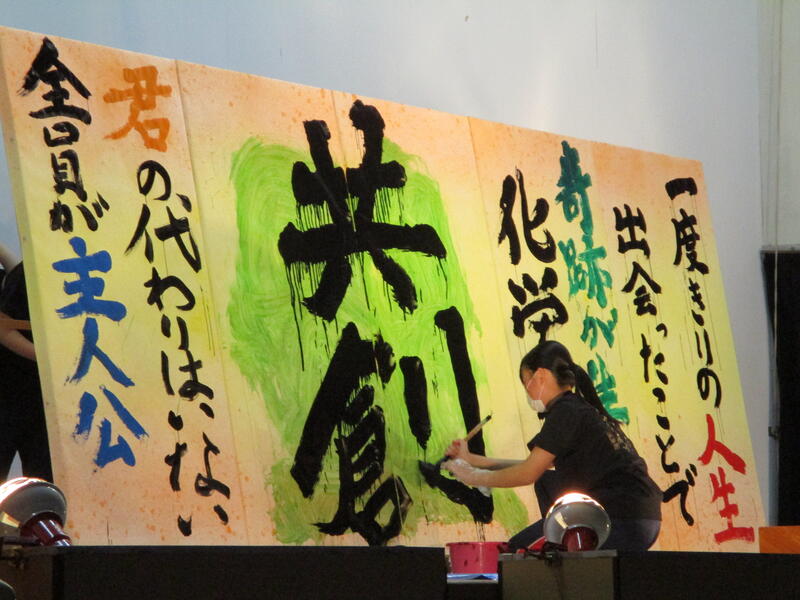 一度きりの人生
出会ったことで
奇跡が生
化学
共創
君の代わりはいない
全員が主人公